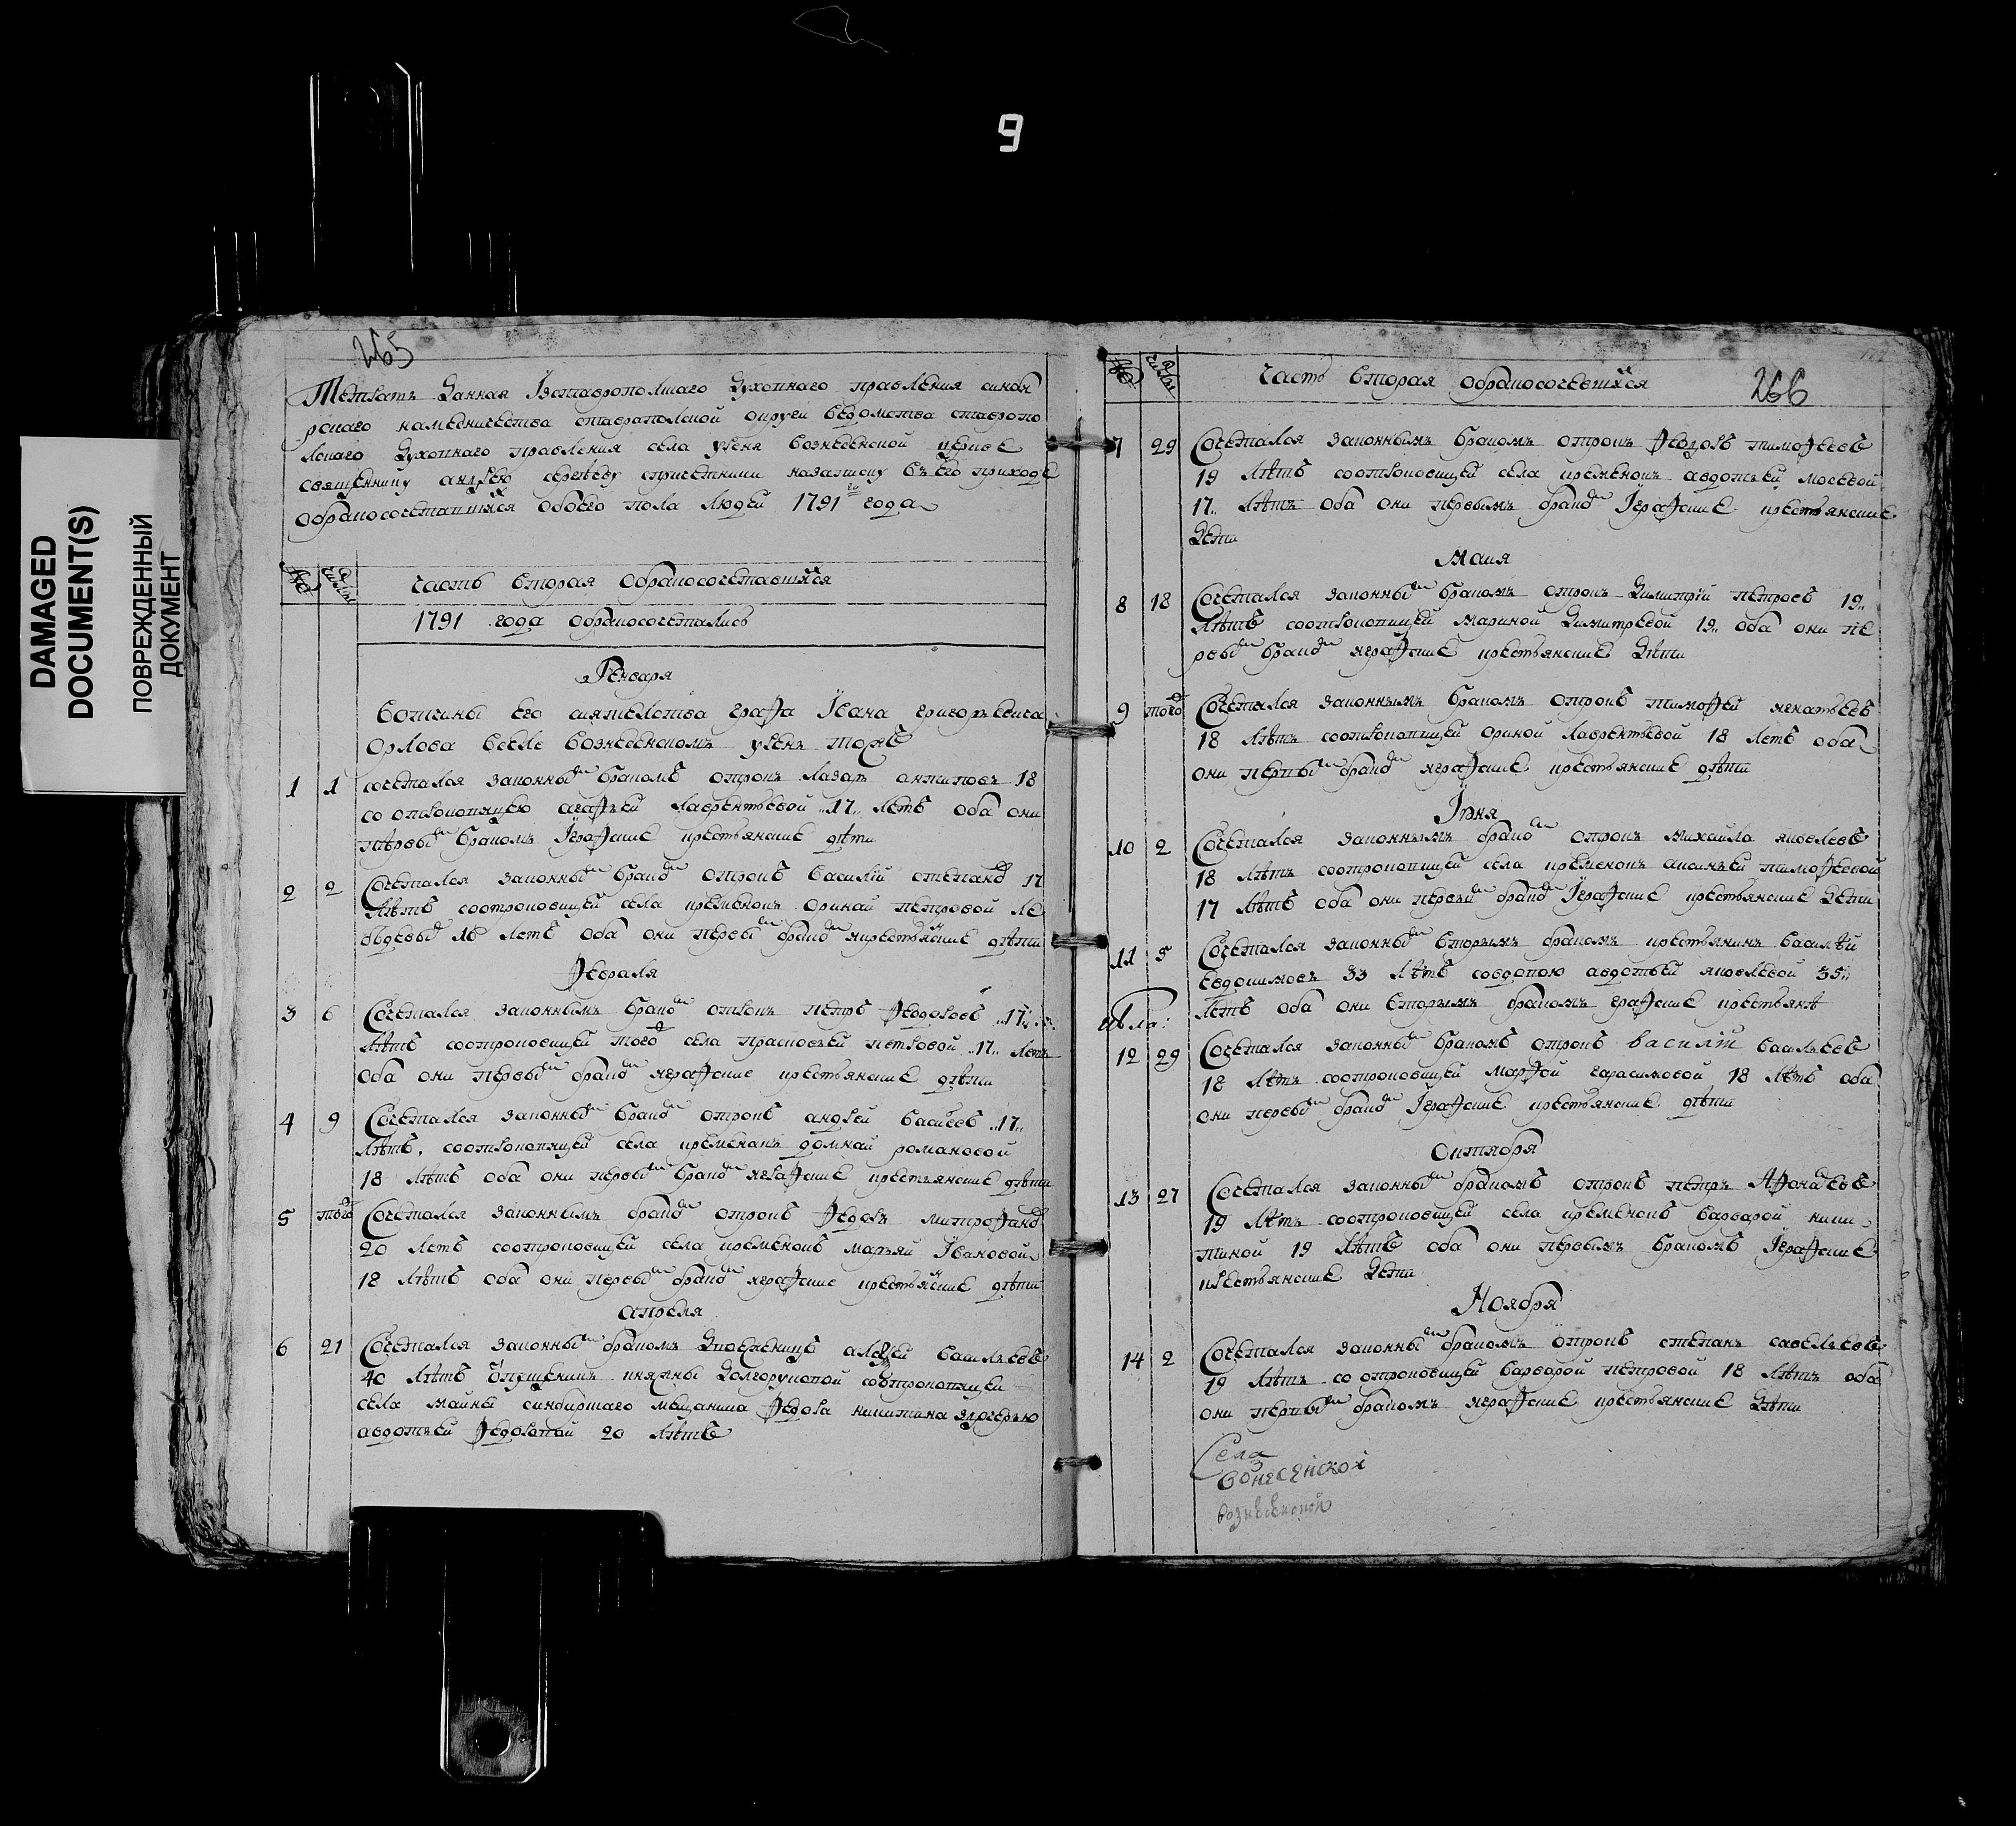 9
DAMAGED
DOCUMENT(S)
ПОВРЕЖДЕННЫЙ
ДОКУМЕНТ
265
Тетрать данная Iзставропольскаго духовнаго правления синби
рскаго наместничества ставрапольской округи ведомства ставропо
льскаго духовнаго правления села урень вознесенской церкве
священнику андрею сергееву спричетники назаписку въ его приходе
обракосочетавшихся обоего пола людей 1791 го года
число
часть вторая обракосочетавшихся
1791 года обракосочеталис
Генваря
вотчины его сиятелства графа Iвана григорьевича
Орлова вселе вознесенскомъ уренъ тожъ
1 1 сочетался законны браком отрокъ лазарь антиповъ 18
со отроковицею агафьей лаврентьевой 17 летъ оба они
первы бракомъ Iграфские крестьянские дети
2 2 Сочетался законны брако отрокъ василiй степано 17
летъ соотроковицей села кременокъ ориной петровой ле
бедевы 18 летъ оба они первы брако икрестьянские дети
Февраля
3 6 Сочетался законнымъ брако отрокъ петръ федоровъ 17
летъ соотроковицей того села прасковьей петровой 17 летъ
оба они первы брако играфские крестьянские дети
4 9 Сочетался законны брако отрокъ андрей васиевъ 17
летъ соотроковицей села кременакъ домнай романовой
18 летъ оба они первы брако играфские крестьянские дети
5 того Сочетался законнымъ брако отрокъ федоръ митрофано
20 летъ соотроковицей села кременокъ марьяй Iвановой
18 летъ оба они первы брако играфские крестьянские дети
апреля
6 21 Сочетался законны бракомъ алексей васильевъ
40 летъ отпущеникъ княжны долгоруковой соотроковицей
села майны синбирскаго мещанина федора никитина здочерью
авдотьей федоровай 20 летъ
число
часть вторая обракосочевшихся
266
7 29 Сочетался законнымъ бракомъ отрокъ федоръ тимофеевъ
19 летъ соотроковицей села кременокъ авдотьей мосевой
17 летъ оба они первымъ брако Iграфские крестьянские
дети
Маия
8 18 Сочетался законны бракомъ отрокъ димитрiй петровъ 19
летъ соотроковицей мариной димитревой 19 оба они пе
рвы брако играфские крестьянские дети
9 того Сочетался законнымъ бракомъ отрокъ тимофей игнатьевъ
18 летъ соотроковицей ориной лаврентьевой 18 летъ оба
они первы брако играфские крестьянские дети
Iюня
10 2 Сочетался законнымъ брако отрокъ михаила яковлевъ
18 летъ соотроковицей села кременокъ аксиньей тимофеевой
17 летъ оба они первы брако Iграфские крестьянские дети
11 5 Сочетался законны вторымъ бракомъ крестьянинъ василей
евдокимовъ 33 летъ совдовою авдотьей яковлевой 35
летъ оба они вторымъ бракомъ графские крестьяня
июла:
12 29 Сочетался законны бракомъ отрокъ василiй васильевъ
18 летъ соотроковицей марфой гарасимовой 18 летъ оба
они первы брако Iграфские крестьянские дети
Октября
13 27 Сочетался законны бракомъ отрокъ петръ Афонасевъ
19 летъ соотроковицей села кременокъ варварой ники
тиной 19 летъ оба они первымъ бракомъ Iграфские
крестьянские дети
Ноября
14 2 Сочетался законны бракомъ отрокъ степанъ савельевъ
19 летъ со отроковицей варварой петровой 18 летъ оба
они первы бракомъ играфские крестьянские дети
Села
вонесенской
вознесенской